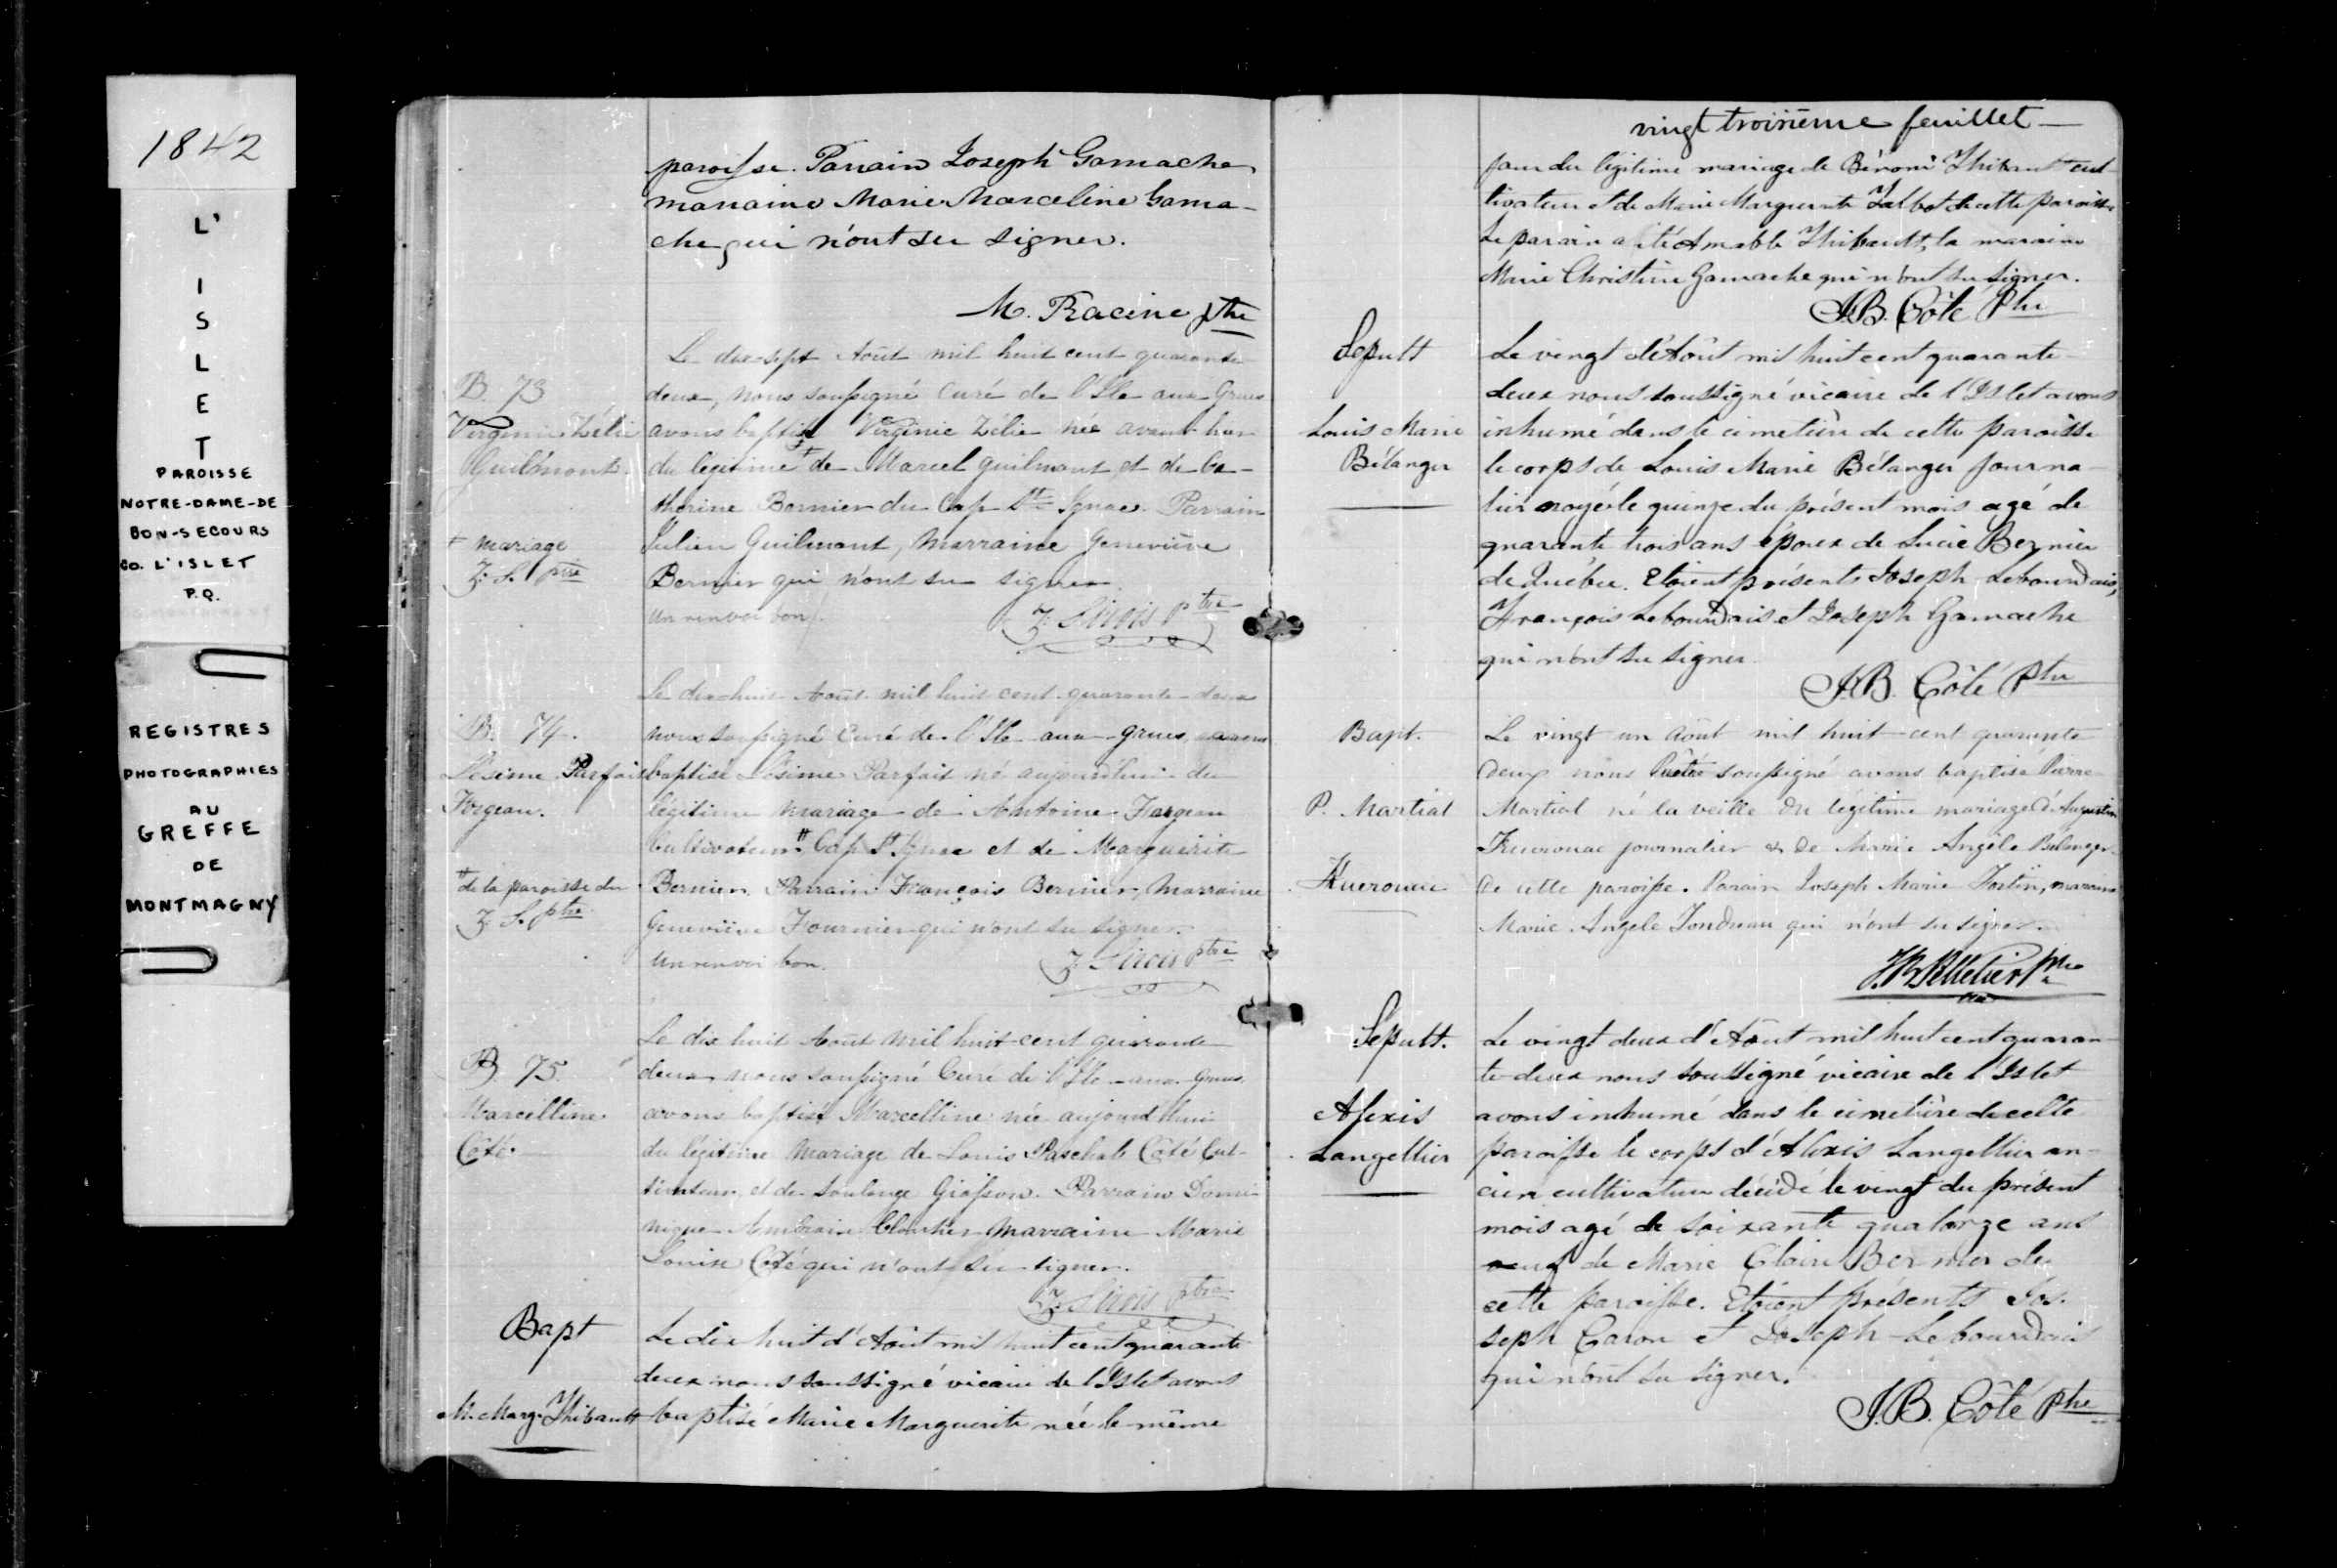 1842
L'
I
S
L
E
T
PAROISSE
NOTRE-DAME-DE
BON-SECOURS
CO. L'ISLET
P.Q.
REGISTRES
PHOTOGRAPHIES
AU
GREFFE
DE
MONTMAGNY
paroisse. Parrain Joseph Gamache
marraine Marie Marceline Gama-
che qui n'ont su signer.
M. Racine ptre
B. 73
Virginie Zélie
Guilmont.
+ mariage
Z. S. ptre
Le dix-sept Août mil huit cent quarante
deux, nous soussigné Curé de l'Ile aux Grues
avons baptisé Virginie Zélie née avant-hier
du légitime + de Marcel Guilmont et de Ca-
therine Bernier du Cap St Ignace. Parrain
Julien Guilmont, Marraine Geneviève
Bernier qui n'ont su signer.
un renvoi bon.
Z. Sirois ptre
B. 74.
Lésime Parfait
Forgeau.
# de la paroisse du
Z. S. ptre
Le dix-huit Août mil huit cent quarante-deux
nous soussigné Curé de l'Ile aux grues avons
baptisé Lésime Parfait né aujourd'hui du
légitime mariage de Antoine Forgeau
Cultivateur # Cap St Ignace et de Marguerite
Bernier. Parrain François Bernier, Marraine
Geneviève Fournier qui n'ont su signer.
Un renvoi bon.
Z. Sirois ptre
B. 75.
Marcelline
Côté.
Le dix huit Août mil huit cent quarante
deux nous soussigné Curé de l'Ile aux Grues
avons baptisé Marcelline née aujourd'hui
du légitime mariage de Louis Paschale Côté Cul-
tivateur et de Soulange Giasson. Parrain Domi-
nique Ambroise Cloutier Marraine Marie
Louise Côté qui n'ont su signer.
Z. Sirois ptre
Bapt
M. Marg. Thibault
Le dix huit d'Août mil huit cent quarante
deux nous soussigné vicaire de l'Islet avons
baptisé Marie Marguerite née le même
vingt troisième feuillet
jour du légitime mariage de Bénoni Thibault cul-
tivateur et de Marie Marguerite Talbot de cette paroisse
Le parain a été Amable Thibault, la maraine
Marie Christine Gamache qui n'ont su signer.
J.B. Côté Ptre
Sepult
Louis Marie
Bélanger
Le vingt d'Août mil huit cent quarante-
deux nous soussigné vicaire de l'Islet avons
inhumé dans le cimetière de cette paroisse
le corps de Louis Marie Bélanger journa-
lier noyé le quinze du présent mois agé de
quarante trois ans époux de Lucie Bernier
de Québec. Etoient présents Joseph Lebourdais,
François Lebourdais et Joseph Gamache
qui n'ont su signer.
J.B. Côté Ptre
Bapt.
P. Martial
Kuerouac
Le vingt un Août mil huit-cent quarante
deux nous Prêtre soussigné avons baptisé Pierre
Martial né la veille du légitime mariage d'Augustin
Kuerouac journalier & de Marie Angèle Bélanger
de cette paroisse. Parain Joseph Marie Fortin, maraine
Marie Angèle Tondreau qui n'ont su signer.
JB Pelletier Ptre
Sepult.
Alexis
Langellier
Le vingt deux d'Août mil huit cent quaran-
te-deux nous soussigné vicaire de l'Islet
avons inhumé dans le cimetière de cette
paroisse le corps d'Alexis Langellier an-
cien cultivateur décidé le vingt du présent
mois agé de soixante quatorze ans
veuf de Marie Claire Bernier de
cette paroisse. Etoient présents Jos-
seph Caron et Joseph Lebourdais
qui n'ont su signer.
J.B. Côté Ptre